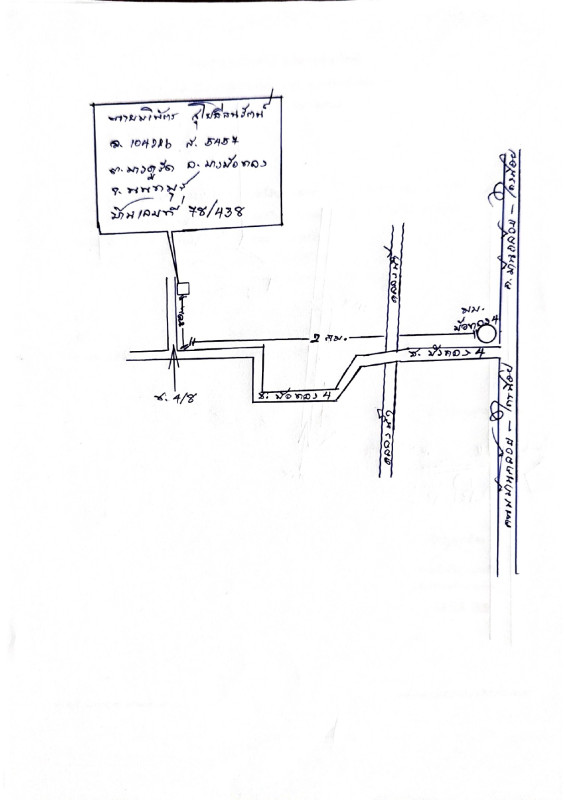 จ. 104226 ส. 5457
ต. บางคูรัด อ. บางบัวทอง
จ. นนทบุรี
บ้านเลขที่ 78/438
คลองน้ำ
ถ. บ้านกล้วย - ไทรน้อย
มบ.
บัวทอง 4
2 กม.
ซ. บัวทอง 4
ซ. บัวทอง 4
ซ. 4/8
คลองน้ำ
ถนนบ้านกล้วย - ไทรน้อย